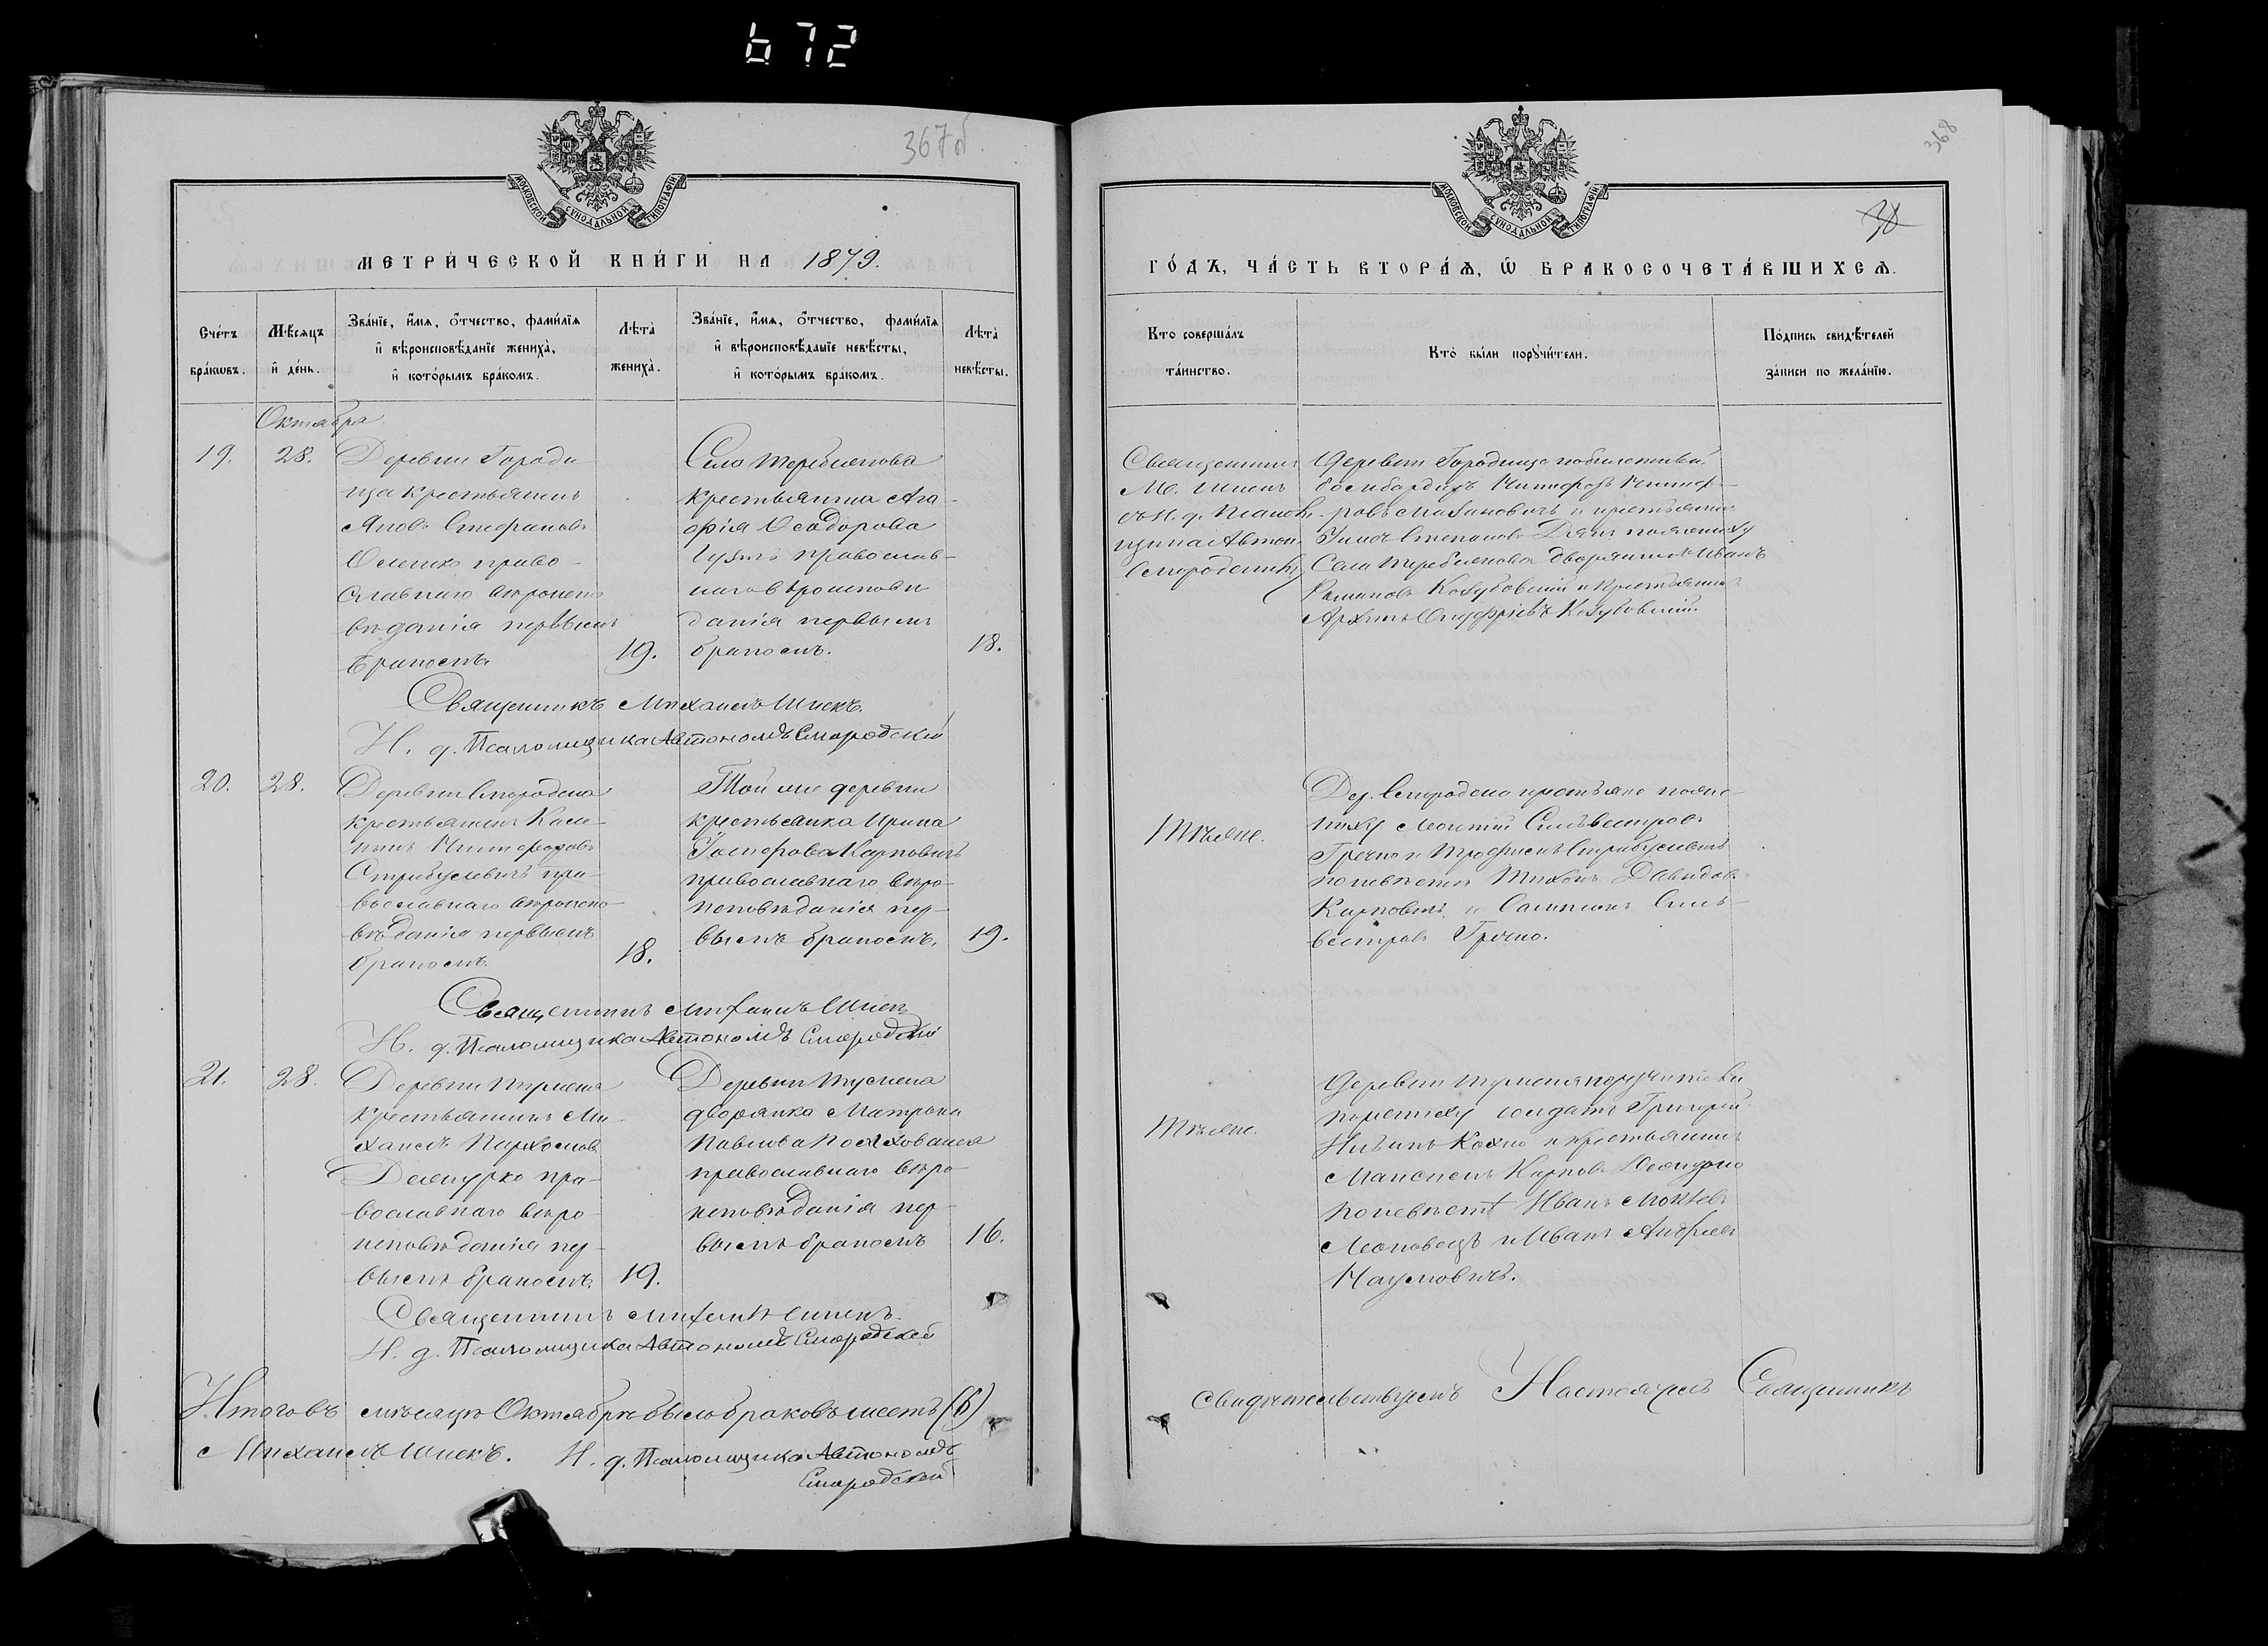 672
367б.
МОСКОВСКОЙ СУНОДАЛЬНОЙ ТИПОГРАФІИ
МЕТРИ́ЧЕСКОЙ КНИ́ГИ НА 1879.
Сче́тъ бра́кѡвъ.
Мѣ́сѧцъ и҆ де́нь.
Зва́нїе, и҆́мѧ, ѻ҆́тчество, фами́лїѧ
и҆ вѣроисповѣ́данїе жениха̀,
и҆ кото́рымъ бра́комъ.
Лѣ́та̀ жениха̀.
Зва́нїе, и҆́мѧ, ѻ҆́тчество, фами́лїѧ
и҆ вѣроисповѣ́данїе невѣ́сты,
и҆ кото́рымъ бра́комъ.
Лѣ́та̀ невѣ́сты.
Октября
19. 28.
Деревни Городи
ща крестьянинъ
Яковъ Стефановъ
право-
славнаго вѣроиспо
вѣданія первымъ
бракомъ
19.
Села Теребежова
крестьянка Ага-
фія Ѳеодорова
православ-
наго вѣроисповѣ
данія первымъ
бракомъ.
18.
Священникъ Михаилъ Шпекъ.
И. д. Псаломщика Автономъ Смородскій
20. 28.
Деревни Смородска
крестьянинъ
Никифоровъ
Стрибулевичъ пра-
вославнаго вѣроиспо-
вѣданія первымъ
бракомъ.
18.
Той же деревни
крестьянка Ирина
Карповичъ
православнаго вѣро-
исповѣданія пер-
вымъ бракомъ.
19.
Священникъ Михаилъ Шпекъ
И. д. Псаломщика Автономъ Смородскій
21. 28.
Деревни
крестьянинъ Ми-
хаилъ Пархомовъ
пра-
вославнаго вѣро-
исповѣданія пер-
вымъ бракомъ.
19.
Деревни
дворянка Матрона
Павлова
православнаго вѣро-
исповѣданія пер-
вымъ бракомъ
16.
Священникъ Михаилъ Шпекъ.
И. д. Псаломщика Автономъ Смородскій
Итого въ мѣсяцѣ Октябрѣ было браковъ шесть (6)
Михаилъ Шпекъ. И. д. Псаломщика Автономъ
Смородскій
368
МОСКОВСКОЙ СУНОДАЛЬНОЙ ТИПОГРАФІИ
38
ГО́ДЪ, ЧА́СТЬ ВТОРА́Ѧ, Ѡ҆ БРАКОСОЧЕТА́ВШИХСѦ.
Кто̀ соверша́лъ та́инство.
Кто̀ бы́ли порꙋчи́тели.
По́дпись свидѣ́телей за́писи по жела́нїю.
Священникъ
М. Шпекъ
съ И. д. Псалом
щика Автон.
Смородскимъ
Деревни Городища
бомбардиръ Никифоръ Никиф-
ровъ и крестьянинъ
Степановъ по жениху
Села Теребежова дворянинъ Иванъ
Козубовскій и крестьянинъ
Архипъ Онуфріевъ Козубовскій.
Тѣже.
Дер. Смородска крестьяне по же-
ниху Леонтій Сильвестровъ
Гречко и Трофимъ Стрибулевичъ
по невѣстѣ Тихонъ Давидовъ
Карповичъ и Самсонъ Силь-
вестровъ Гречко.
Тѣже.
Деревни поручители
по жениху солдатъ Григорій
и крестьянинъ
Максимъ Карповъ
по невѣстѣ Иванъ
и Иванъ Андреевъ
Наумовичъ.
Свидѣтельствуемъ Настоятель Священникъ